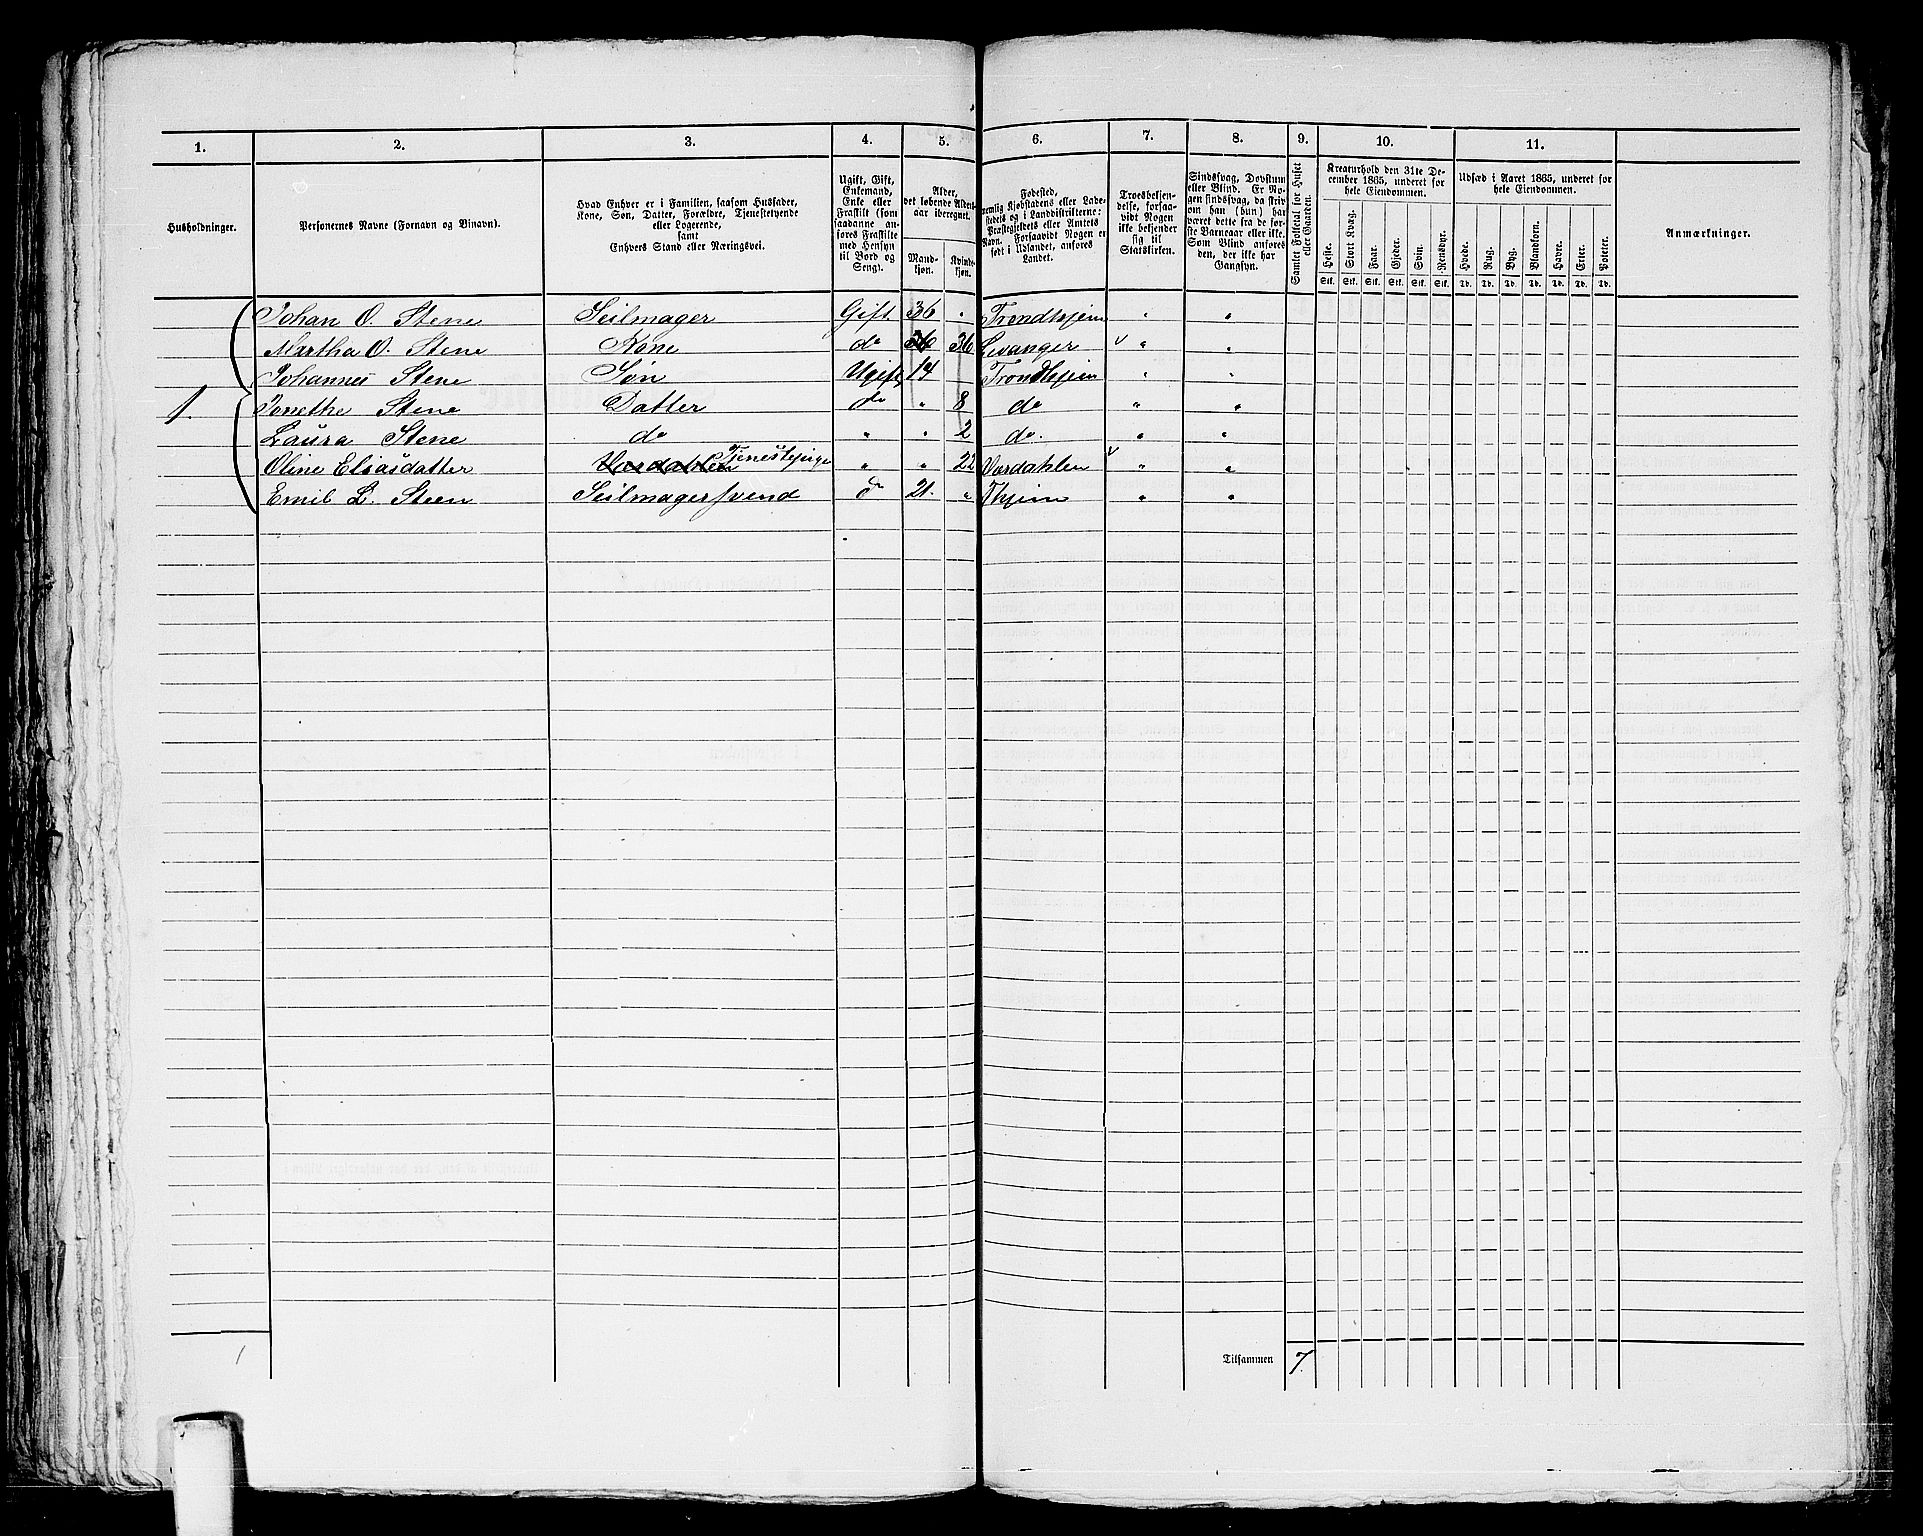 1. 2. 3. 4. 5. 6. 7. 8. 9. 10. 11.
Husholdninger.
Personernes Navne (Fornavn og Binavn).
Hvad Enhver er i Familien, saasom Husfader,
Kone, Søn, Datter, Forældre, Tjenestetyende
eller Logerende,
samt
Enhvers Stand eller Næringsvei.
Ugift, Gift,
Enkemand,
Enke eller
Fraskilt (som
saadanne an-
føres Fraskilte
med Hensyn
til Bord og
Seng).
Alder,
det løbende Alders-
aar iberegnet.
Mand-
kjøn.
Kvind-
kjøn.
Fødested,
nemlig Kjøbstadens eller Lade-
stedets og i Landdistrikterne:
Præstegjeldets eller Amtets
Navn. Forsaavidt Nogen er
født i Udlandet, anføres
Landet.
Troesbekjen-
delse, forsaa-
vidt Nogen
ikke bekjender
sig til
Statskirken.
Sindssvag, Døvstum
eller Blind. Er No-
gen sindssvag, da skriv
om han (hun) har
været dette fra de før-
ste Barneaar eller ikke.
Som Blind anføres
den, der ikke har
Gangsyn.
Samlet Folketal for Huset
eller Gaarden.
Kreaturhold den 31te De-
cember 1865, underet for
hele Eiendommen.
Heste. Stort Kvæg. Faar. Gjeder. Svin. Rensdyr.
Stk. Stk. Stk. Stk. Stk. Stk.
Udsæd i Aaret 1865, underet for
hele Eiendommen.
Hvede. Rug. Byg. Blandkorn. Havre. Erter. Poteter.
Td. Td. Td. Td. Td. Td. Td.
Anmærkninger.
Johan O. Stene Seilmager Gift 36 " Trondhjem " "
Martha O. Stene Kone do 36 36 Levanger v " "
Johannes Stene Søn Ugift 14 Trondhjem " "
1. Jonethe Stene Datter do " 8 do " "
Laura Stene do " " 2 do. " "
Oline Eliasdatter Værdahlen Tjenestepige " " 22 Værdahlen v " "
Emil L. Steen Seilmagersvend do 21. " Thjem " "
1
Tilsammen 7.